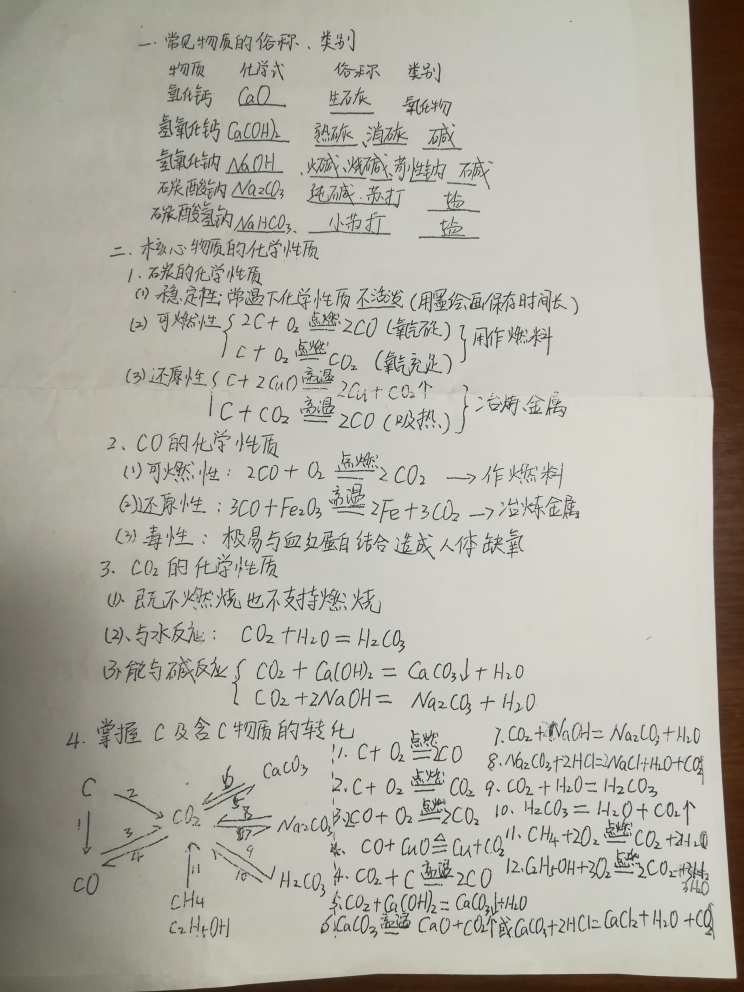 一. 常见物质的俗称、类别
物质 化学式 俗称 类别
氧化钙 CaO 生石灰 氧化物
氢氧化钙 Ca(OH)₂ 熟石灰、消石灰 碱
氢氧化钠 NaOH 火碱、烧碱、苛性钠 碱
碳酸钠 Na₂CO₃ 纯碱、苏打 盐
碳酸氢钠 NaHCO₃、 小苏打 盐
二. 核心物质的化学性质
1. 碳的化学性质
(1) 稳定性: 常温下化学性质不活泼 (用墨绘画保存时间长)
(2) 可燃性 { 2C + O₂ 点燃══ 2CO (氧气不足) } 用作燃料
C + O₂ 点燃══ CO₂ (氧气充足)
(3) 还原性 { C + 2CuO 高温══ 2Cu + CO₂↑ } 冶炼金属
C + CO₂ 高温══ 2CO (吸热)
2. CO的化学性质
(1) 可燃性: 2CO + O₂ 点燃══ 2CO₂ → 作燃料
(2) 还原性: 3CO + Fe₂O₃ 高温══ 2Fe + 3CO₂ → 冶炼金属
(3) 毒性: 极易与血红蛋白结合造成人体缺氧
3. CO₂的化学性质
(1). 既不燃烧也不支持燃烧
(2)、与水反应: CO₂ + H₂O = H₂CO₃
(3). 能与碱反应 { CO₂ + Ca(OH)₂ = CaCO₃↓ + H₂O
CO₂ + 2NaOH = Na₂CO₃ + H₂O
4. 掌握C及含C物质的转化
C 2 CO₂ 6 5 CaCO₃
1 3 4 8 7 Na₂CO₃
CO 11 9 10 H₂CO₃
CH₄
C₂H₅OH
1. C + O₂ 点燃══ 2CO
2. C + O₂ 点燃══ CO₂
3. 2CO + O₂ 点燃══ 2CO₂
CO + CuO △══ Cu + CO₂
4. CO₂ + C 高温══ 2CO
5. CO₂ + Ca(OH)₂ = CaCO₃↓ + H₂O
6. CaCO₃ 高温══ CaO + CO₂↑ 或 CaCO₃ + 2HCl = CaCl₂ + H₂O + CO₂
7. CO₂ + NaOH = Na₂CO₃ + H₂O
8. Na₂CO₃ + 2HCl = 2NaCl + H₂O + CO₂
9. CO₂ + H₂O = H₂CO₃
10. H₂CO₃ = H₂O + CO₂↑
11. CH₄ + 2O₂ 点燃══ CO₂ + 2H₂O
12. C₂H₅OH + 3O₂ 点燃══ 2CO₂ + 3H₂O